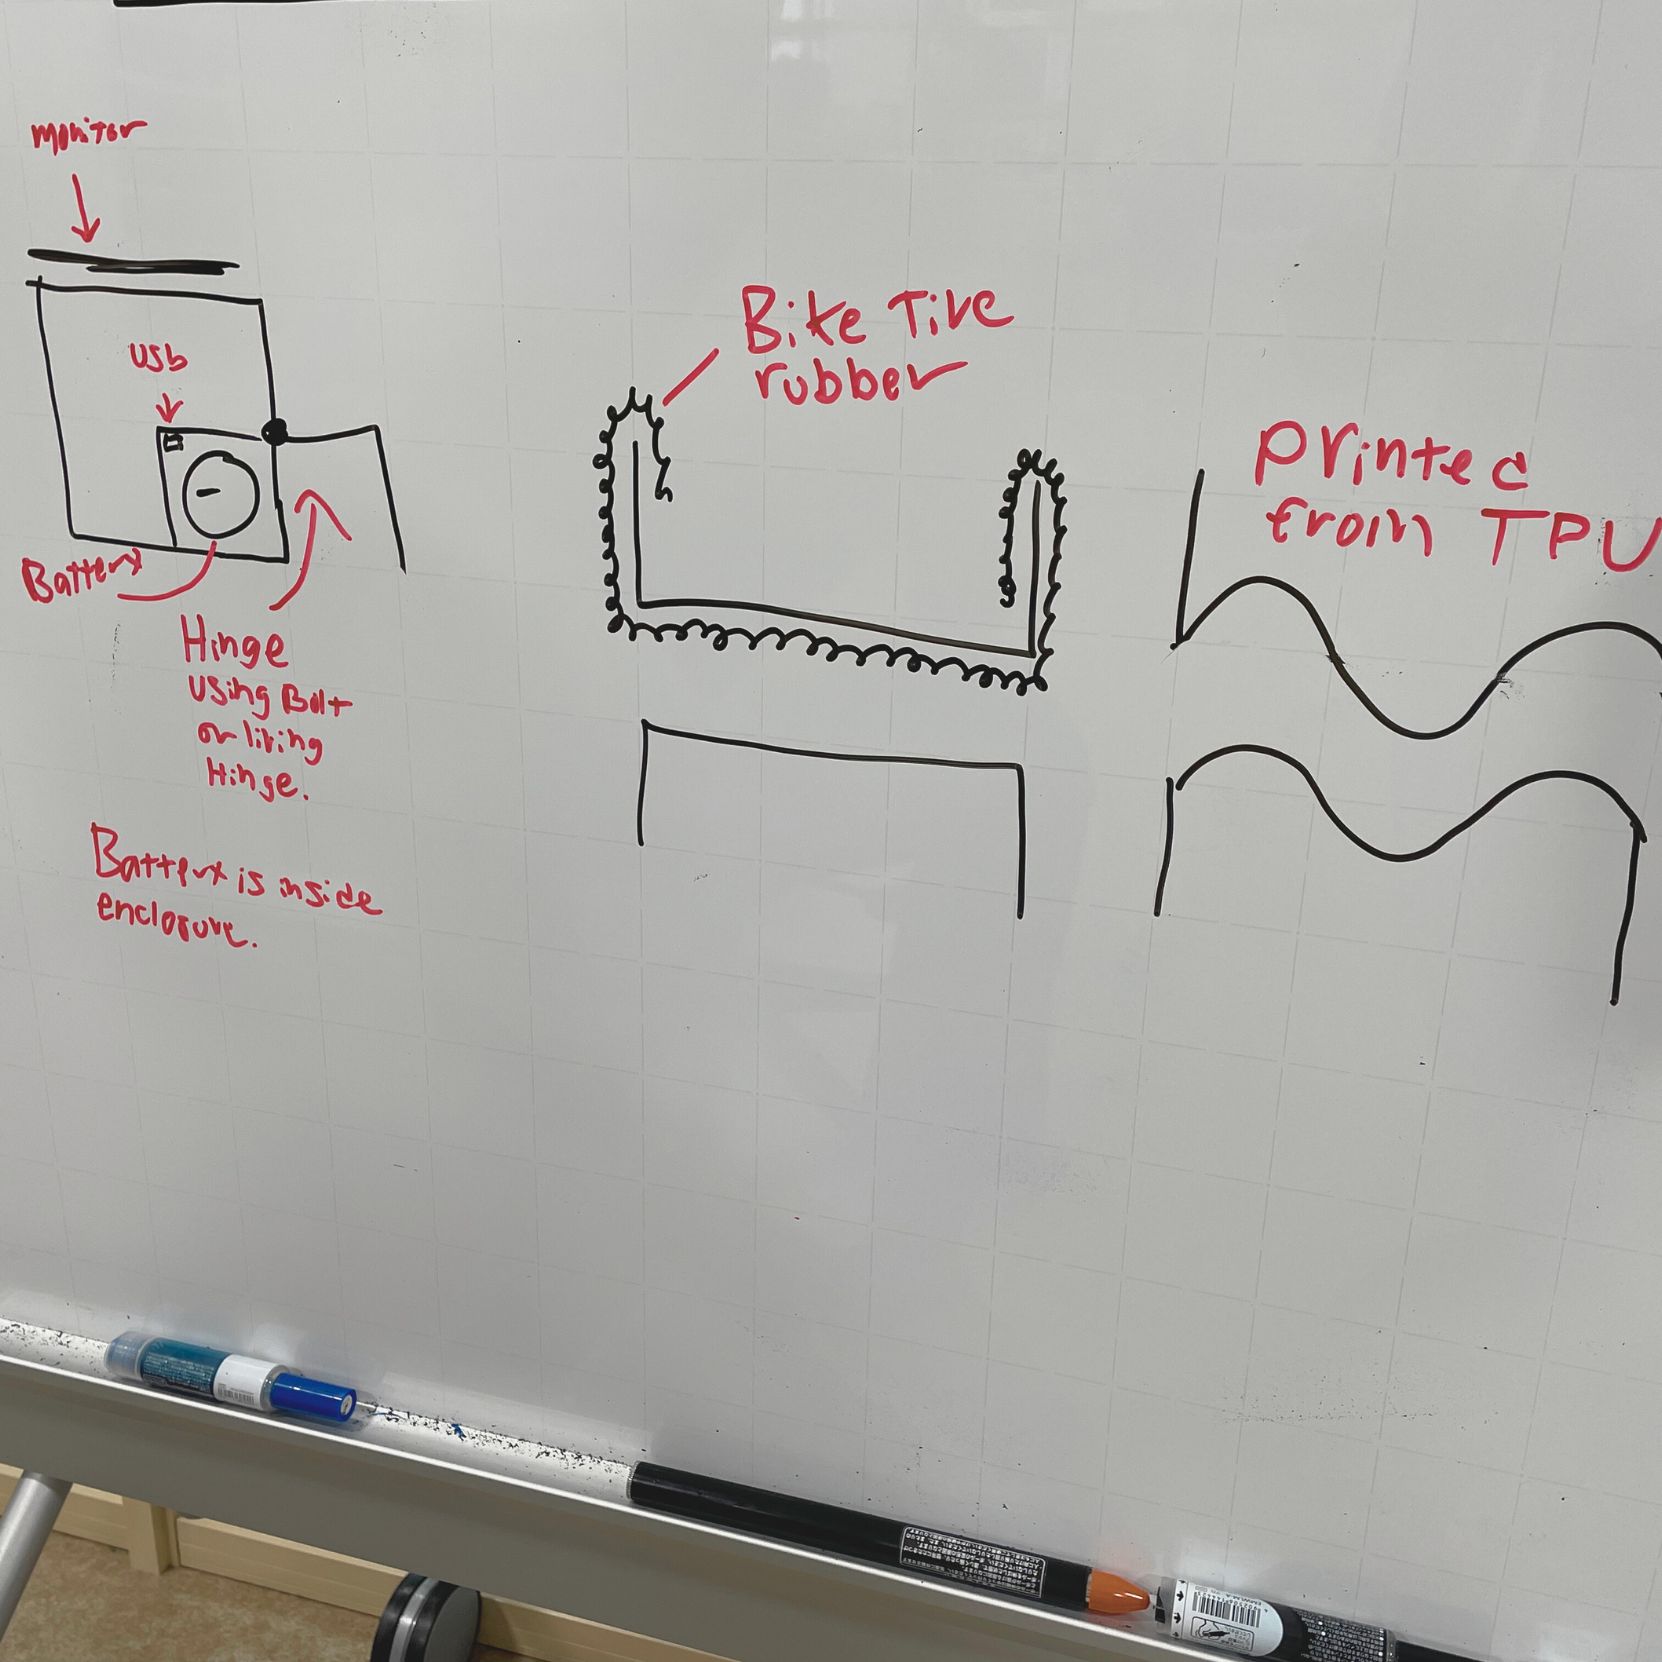 monitor
USb
Battery
Hinge
using Bolt
or living
Hinge.
Battery is inside
enclosure.
Bike Tire
rubber
Printed
from TPU